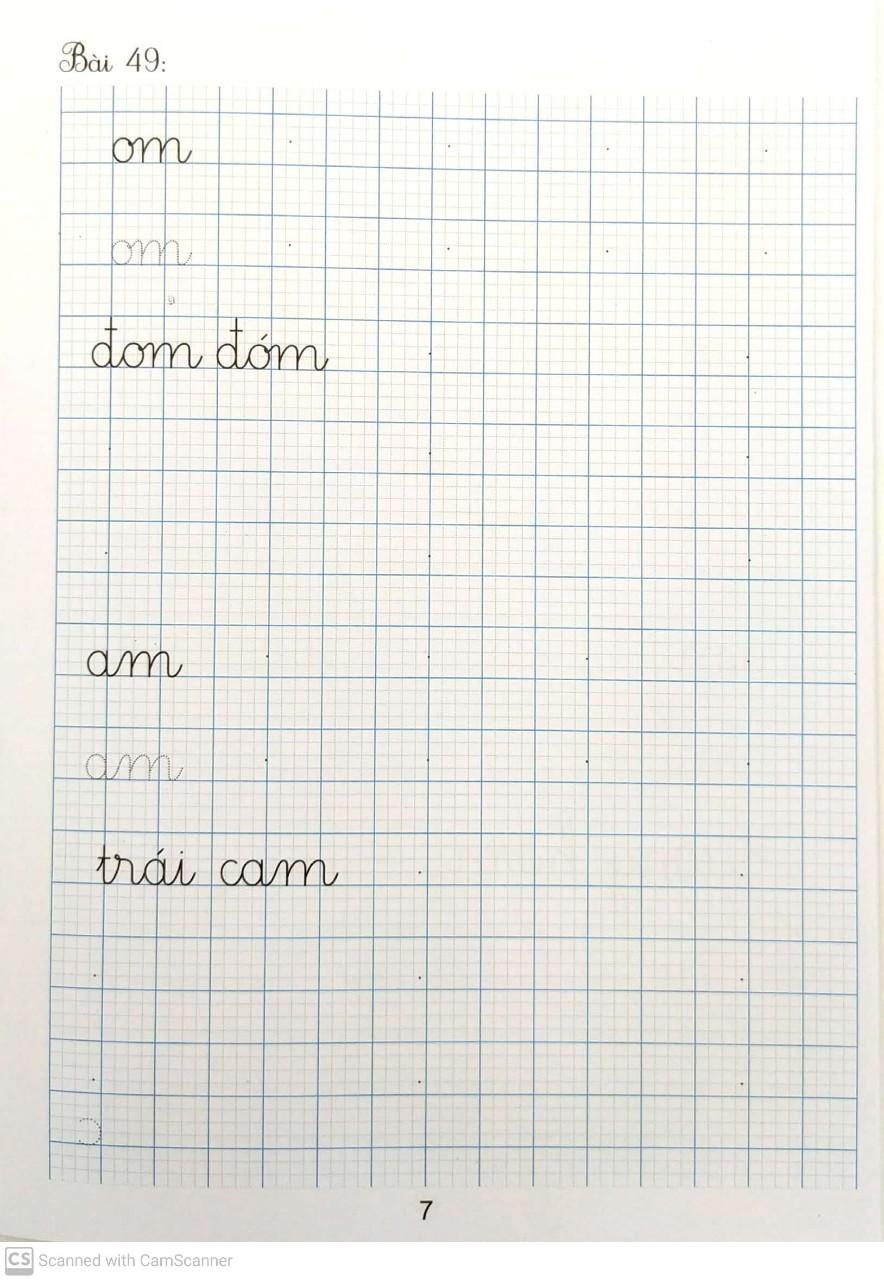 Bài 49:
om
om
đom đóm
am
am
trái cam
7
CS Scanned with CamScanner